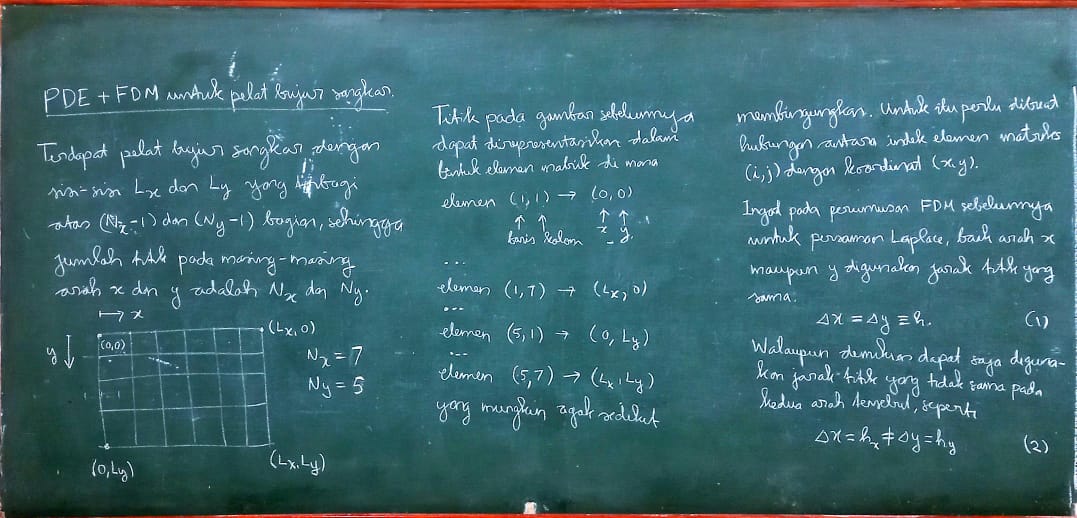 PDE + FDM untuk pelat bujur sangkar.
Terdapat pelat bujur sangkar dengan
sisi-sisi Lx dan Ly yang terbagi
atas (Nx-1) dan (Ny-1) bagian, sehingga
jumlah titik pada masing-masing
arah x dan y adalah Nx dan Ny.
↦ x
y ↓
(0,0)
(Lx, 0)
Nx = 7
Ny = 5
(0, Ly)
(Lx, Ly)
Titik pada gambar sebelumnya
dapat direpresentasikan dalam
bentuk elemen matrik di mana
elemen (1,1) → (0,0)
↑ ↑ ↑ ↑
baris kolom x y
...
elemen (1,7) → (Lx, 0)
...
elemen (5,1) → (0, Ly)
...
elemen (5,7) → (Lx, Ly)
yang mungkin agak sedikit
membingungkan. Untuk itu perlu dibuat
hubungan antara indek elemen matriks
(i,j) dengan koordinat (x,y).
Ingat pada perumusan FDM sebelumnya
untuk persamaan Laplace, baik arah x
maupun y digunakan jarak titik yang
sama.
Δx = Δy ≡ h. (1)
Walaupun demikian dapat saja diguna-
kan jarak titik yang tidak sama pada
kedua arah tersebut, seperti
Δx = hx ≠ Δy = hy (2)